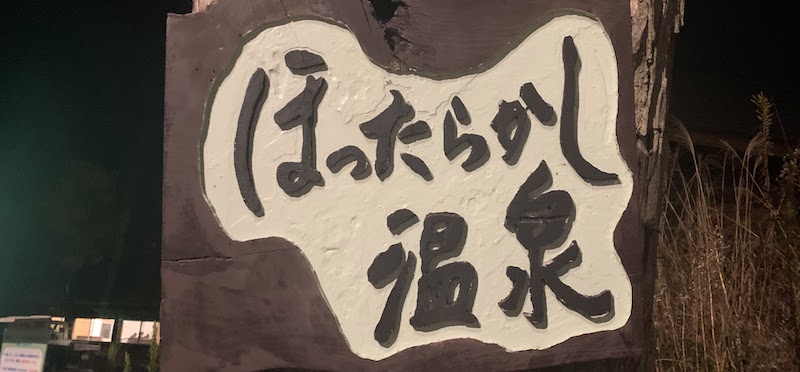 ほったらかし
温泉